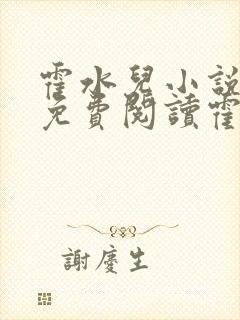 霍水兒小說
免費閱讀霍
謝慶生